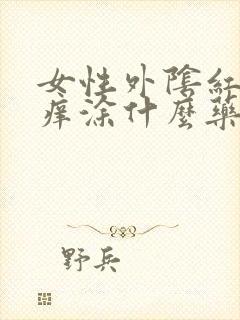 女性外陰紅
癢涂什麼藥
野兵